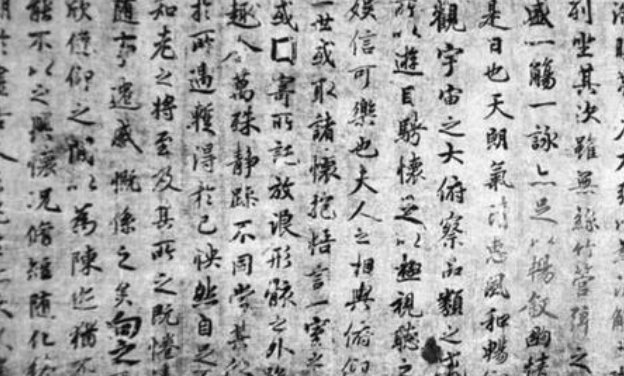 列坐其次雖無絲竹管弦之
盛一觴一詠亦足以暢敘幽情
是日也天朗氣清惠風和暢
觀宇宙之大俯察品類之盛
所以遊目騁懷足以極視聽之
娛信可樂也夫人之相與俯仰
一世或取諸懷抱悟言一室之
或因寄所託放浪形骸之外雖
趣舍萬殊靜躁不同當其欣
於所遇暫得於己怏然自足不
知老之將至及其所之既惓
隨事遷感慨係之矣向之
欣俛仰之閒以為陳迹猶不
能不以之興懷況脩短隨化終